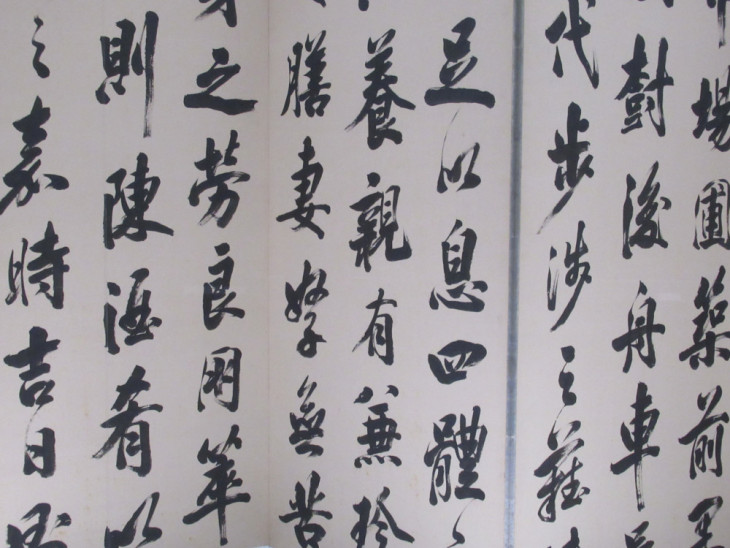 場圃築前
樹後舟車
代步涉之難
足以息四體之
養親有兼珍
膳妻孥無苦
身之勞良朋萃
則陳酒肴以
之嘉時吉日則